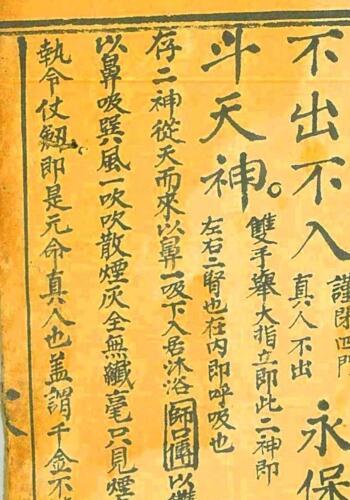 不出不入
謹閉四門
真人不出
永保
斗天神。
雙手舉大指立即此二神即
左右二腎也在內即呼吸也
存二神從天而來以鼻一吸下入居沐浴師口傳以
以鼻吸巽風一吹吹散煙灰全無纖毫只見煙
執令仗釼即是元命真人也蓋謂千金不